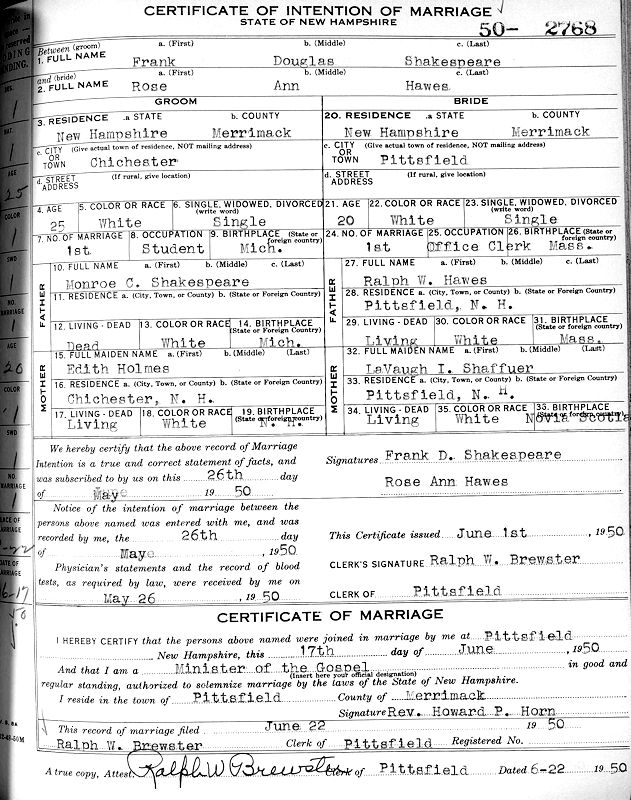 CERTIFICATE OF INTENTION OF MARRIAGE
STATE OF NEW HAMPSHIRE
50- 2768
Between (groom) a. (First) b. (Middle) c. (Last)
1. FULL NAME Frank Douglas Shakespeare
and (bride) a. (First) b. (Middle) c. (Last)
2. FULL NAME Rose Ann Hawes
GROOM BRIDE
3. RESIDENCE .a STATE b. COUNTY 20. RESIDENCE .a STATE b. COUNTY
New Hampshire Merrimack New Hampshire Merrimack
c. CITY OR TOWN (Give actual town of residence, NOT mailing address) Chichester c. CITY OR TOWN (Give actual town of residence, NOT mailing address) Pittsfield
d. STREET ADDRESS (If rural, give location) d. STREET ADDRESS (If rural, give location)
4. AGE 5. COLOR OR RACE 6. SINGLE, WIDOWED, DIVORCED (write word) 21. AGE 22. COLOR OR RACE 23. SINGLE, WIDOWED, DIVORCED (write word)
25 White Single 20 White Single
7. NO. OF MARRIAGE 8. OCCUPATION 9. BIRTHPLACE (State or foreign country) 24. NO. OF MARRIAGE 25. OCCUPATION 26. BIRTHPLACE (State or foreign country)
1st Student Mich. 1st Office Clerk Mass.
FATHER 10. FULL NAME a. (First) b. (Middle) c. (Last) FATHER 27. FULL NAME a. (First) b. (Middle) c. (Last)
Monroe C. Shakespeare Ralph W. Hawes
11. RESIDENCE a. (City, Town, or County) b. (State or Foreign Country) 28. RESIDENCE a. (City, Town, or County) b. (State or Foreign Country)
Pittsfield, N. H.
12. LIVING - DEAD 13. COLOR OR RACE 14. BIRTHPLACE (State or foreign country) 29. LIVING - DEAD 30. COLOR OR RACE 31. BIRTHPLACE (State or foreign country)
Dead White Mich. Living White Mass.
MOTHER 15. FULL MAIDEN NAME a. (First) b. (Middle) (Last) MOTHER 32. FULL MAIDEN NAME a. (First) b. (Middle) (Last)
Edith Holmes LaVaugh I. Shaffuer
16. RESIDENCE a. (City, Town, or County) b. (State or Foreign Country) 33. RESIDENCE a. (City, Town, or County) b. (State or Foreign Country)
Chichester, N. H. Pittsfield, N. H.
17. LIVING - DEAD 18. COLOR OR RACE 19. BIRTHPLACE (State or foreign country) 34. LIVING - DEAD 35. COLOR OR RACE 36. BIRTHPLACE (State or foreign country)
Living White N. H. Living White Novia Scotia
We hereby certify that the above record of Marriage
Intention is a true and correct statement of facts, and
was subscribed to by us on this 26th day
of May 19 50
Signatures Frank D. Shakespeare
Rose Ann Hawes
Notice of the intention of marriage between the
persons above named was entered with me, and was
recorded by me, the 26th day
of May , 1950
This Certificate issued June 1st , 1950
Physician's statements and the record of blood
tests, as required by law, were received by me on
May 26 , 19 50
CLERK'S SIGNATURE Ralph W. Brewster
CLERK OF Pittsfield
CERTIFICATE OF MARRIAGE
I HEREBY CERTIFY that the persons above named were joined in marriage by me at Pittsfield
New Hampshire, this 17th day of June , 1950
And that I am a Minister of the Gospel in good and
(Insert here your official designation)
regular standing, authorized to solemnize marriage by the laws of the State of New Hampshire.
I reside in the town of Pittsfield County of Merrimack
Signature Rev. Howard P. Horn
This record of marriage filed June 22 19 50
Ralph W. Brewster Clerk of Pittsfield Registered No.
A true copy, Attest Ralph W Brewster Clerk of Pittsfield Dated 6-22 1950